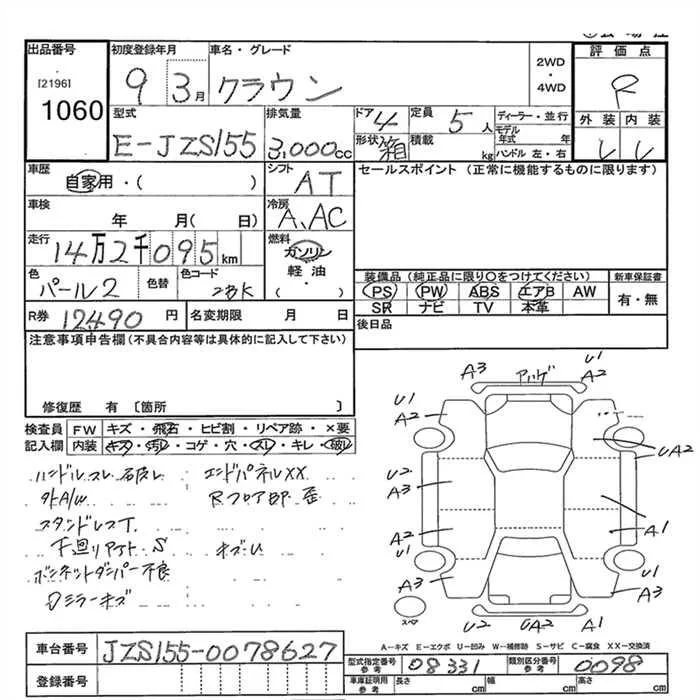 出品番号
[2196]
1060
初度登録年月
9 3月
車名・グレード
クラウン
2WD
・
4WD
評価点
R
型式
E-JZS155
排気量
3,000cc
ドア 4
形状 箱
定員 5人
積載 kg
ディーラー・並行
モデル年式 年
ハンドル 左・右
外装 内装
車歴
自家用・( )
シフト
AT
セールスポイント (正常に機能するものに限ります)
車検
年 月( 日)
冷房
A、AC
走行
14万2千095km
燃料
ガソリン
軽油・
( )
色
パール2
色替
色コード
2BK
装備品 (純正品に限り○をつけてください)
PS PW ABS エアB AW
SR ナビ TV 本革
新車保証書
有・無
R券 12490 円
名変期限 月 日
後日品
注意事項申告欄(不具合内容等は具体的に記入して下さい)
修復歴 有 〔箇所 〕
検査員記入欄
FW キズ・飛石・ヒビ割・リペア跡・×要
内装 キズ・汚レ・コゲ・穴・スレ・キレ・破レ
ハンドルスレ
エンドパネルXX
外A/W
Rフロア部 歪
スタンドレスT.
下廻り S
キズU
ボンネットダンパー不良
ミラーキズ
A3 U1
U1 A2
A2
U2
A3
UA2
A2
A1
U1
A3
U1
A3
U2 UA2 A1
スペア
A-キズ E-エクボ U-凹み W-補修跡 S-サビ C-腐食 XX-交換済
車台番号 JZS155-0078627
登録番号
型式指定番号 参考 08331
類別区分番号 参考 0098
車庫証明用 参考 長さ cm 幅 cm 高さ cm